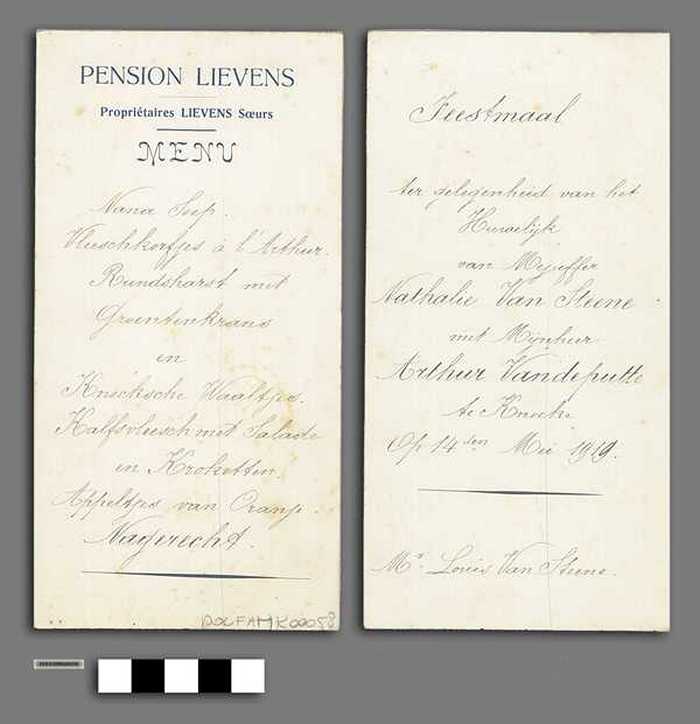 PENSION LIEVENS
Propriétaires LIEVENS Sœurs
MENU
Nana Soep.
Vleeschkorfjes à l'Arthur.
Rundsharst met
Groentenkrans
en
Knocksche Waaltjes.
Kalfsvleesch met Salade
en Kroketten.
Appeltjes van Oranj.
Nagerecht.
DOCFAMK00058
Feestmaal
ter gelegenheid van het
Huwelijk
van Mejuffer
Nathalie Van Steene
met Mijnheer
Arthur Vandeputte
te Knocke
Op 14den Mei 1919.
Mr. Louis Van Steene.